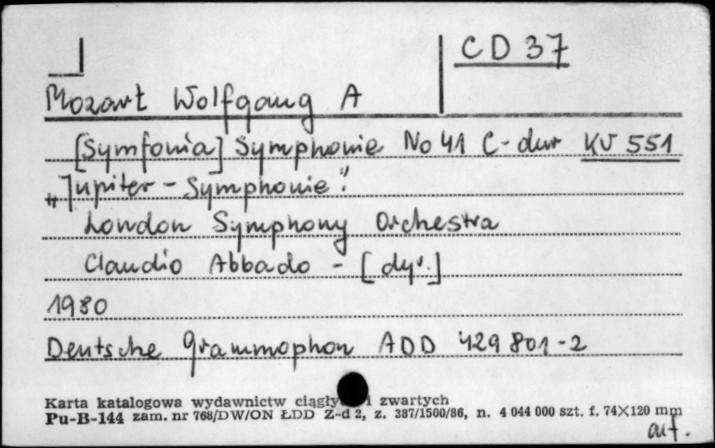 CD 37
Mozart Wolfgang A
[Symfonia] Symphonie No 41 C-dur KV 551
„Jupiter - Symphonie".
London Symphony Orchestra
Claudio Abbado - [dyr.]
1980
Deutsche Grammophon ADD 429 801-2
Karta katalogowa wydawnictw i zwartych
Pu-B-144 zam. nr 768/DW/ON ŁDD Z-d 2, z. 387/1500/86, n. 4 044 000 szt. f. 74×120 mm